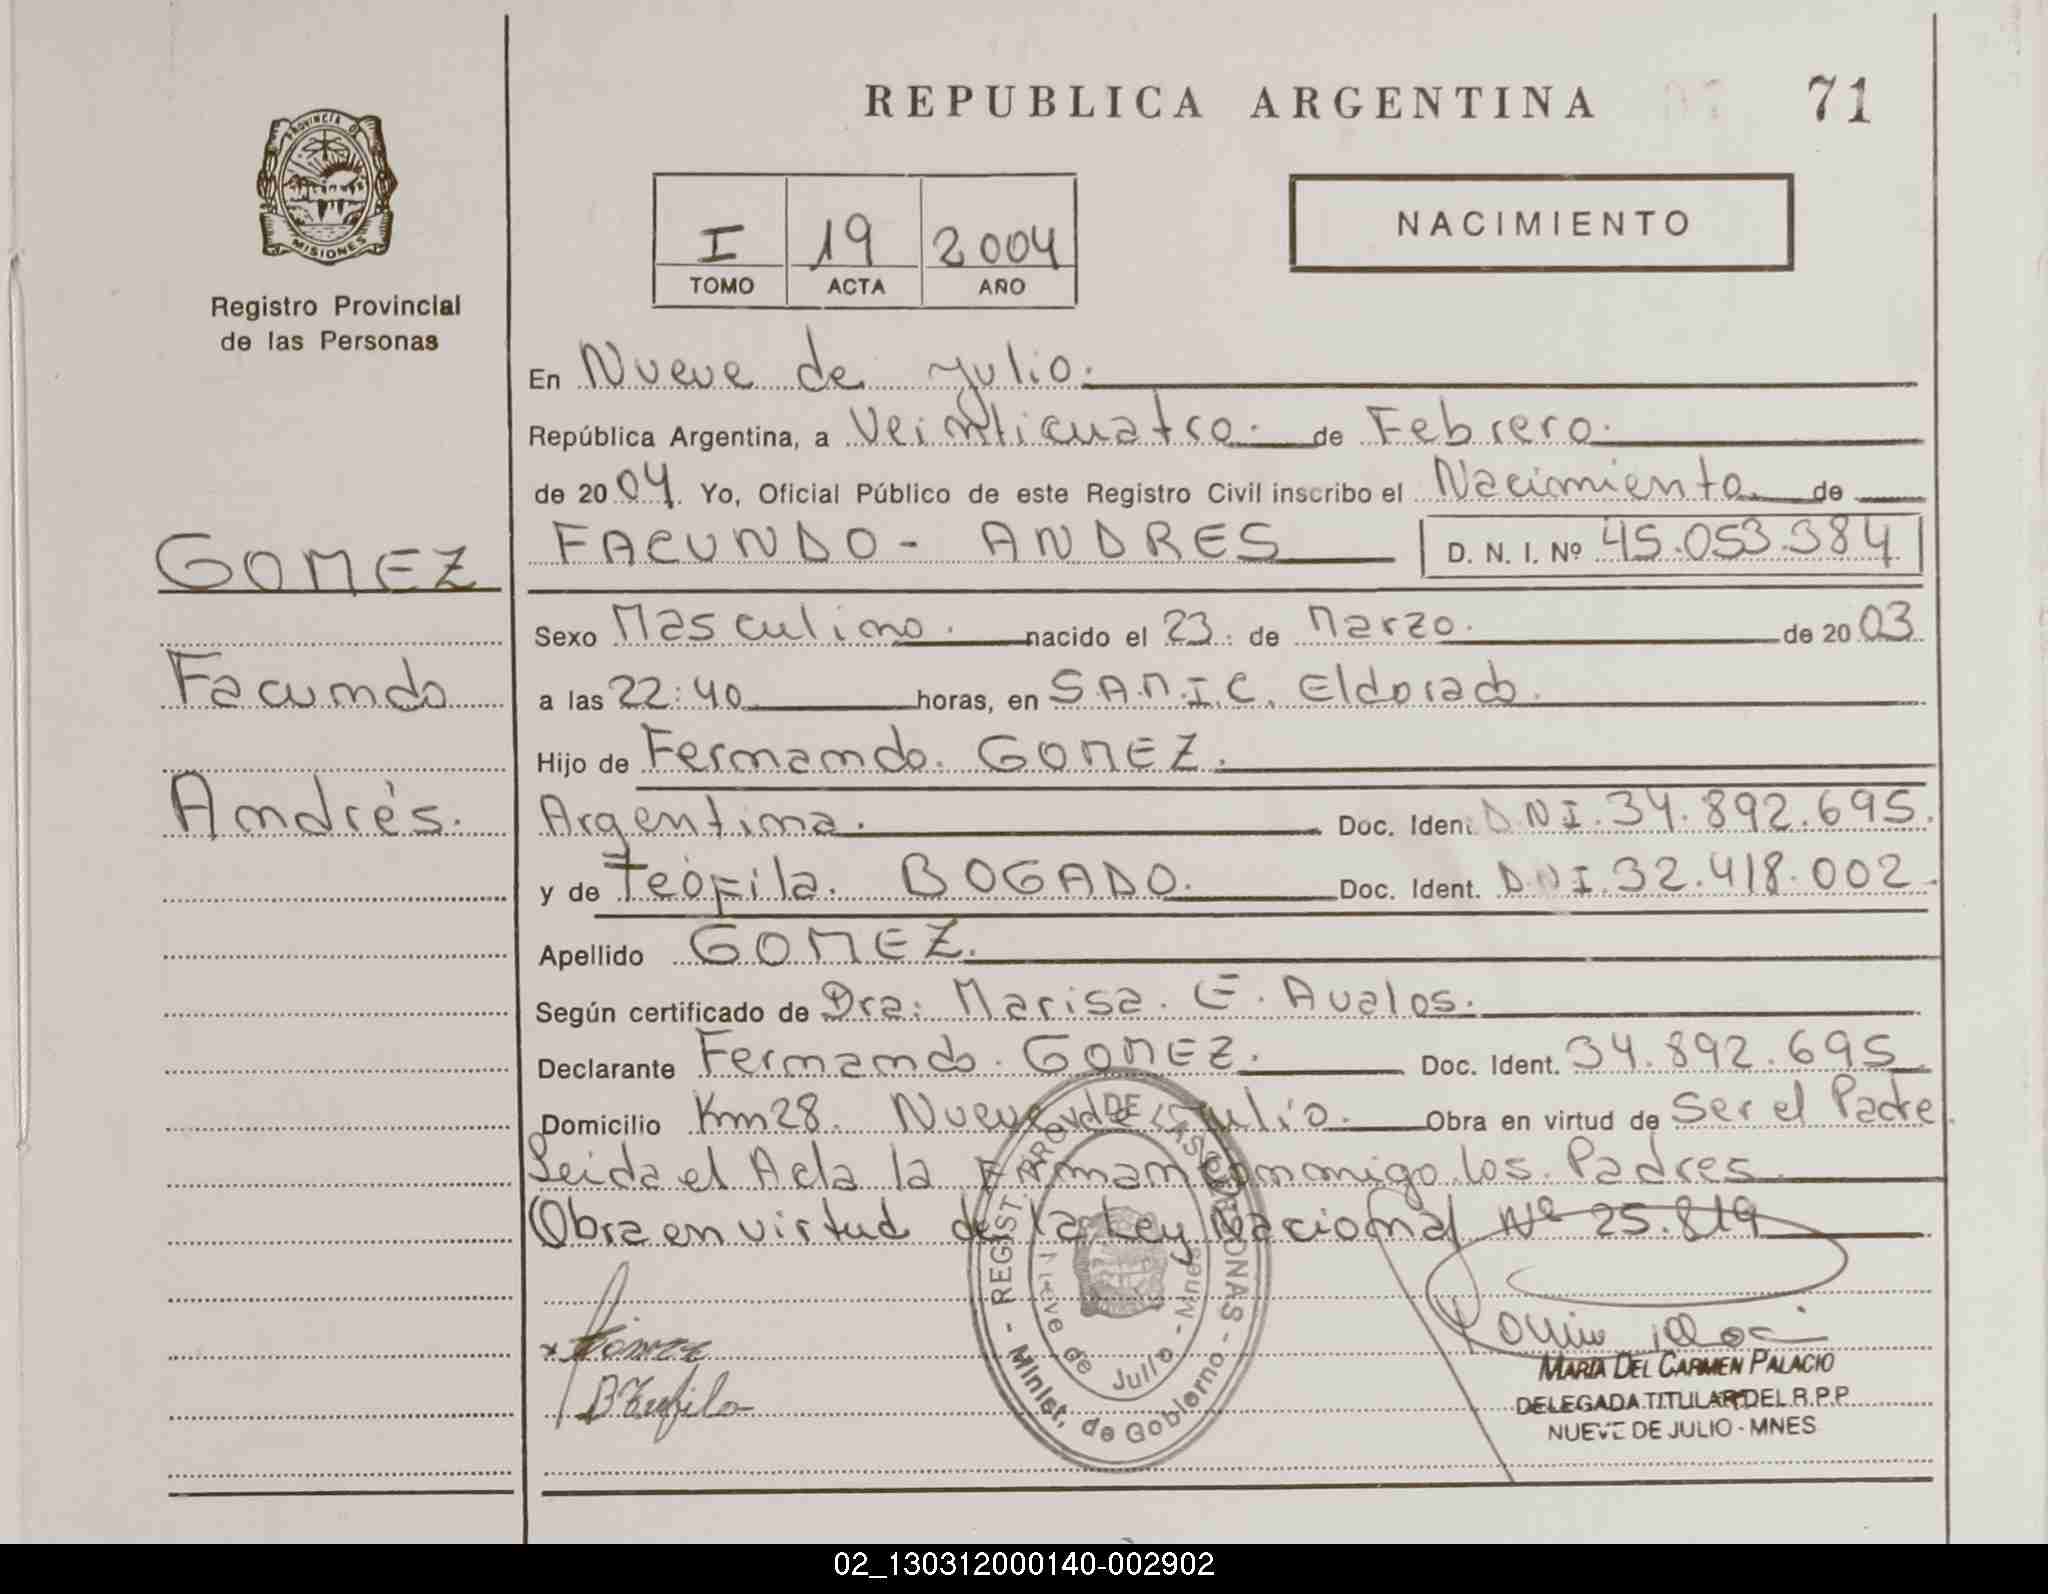 REPUBLICA ARGENTINA
71
PROVINCIA DE
MISIONES
Registro Provincial
de las Personas
I 19 2004
TOMO ACTA AÑO
NACIMIENTO
En Nueve de Julio.
República Argentina, a Veinticuatro. de Febrero.
de 2004. Yo, Oficial Público de este Registro Civil inscribo el Nacimiento de
GOMEZ
FACUNDO - ANDRES D. N. I. Nº 45.053.384
Sexo Masculino. nacido el 23. de Marzo. de 2003
Facundo
a las 22:40 horas, en S.A.M.I.C. Eldorado.
Hijo de Fernando. GOMEZ.
Andrés.
Argentina. Doc. Iden. DNI.34.892.695.
y de Teófila. BOGADO. Doc. Ident. DNI.32.418.002
Apellido GOMEZ.
Según certificado de Dra: Marisa. E. Avalos.
Declarante Fernando. GOMEZ. Doc. Ident. 34.892.695
Domicilio Km28. Nueve de Julio. Obra en virtud de Ser el Padre.
Leida el Acta la Firman conmigo los Padres
Obra en virtud de la Ley Nacional Nº 25.819
REGIST. PROV. DE LAS PERSONAS - Minist. de Gobierno -
Nueve de Julio - Mnes
Gómez
B Teofila
MARIA DEL CARMEN PALACIO
DELEGADA TITULAR DEL R.P.P.
NUEVE DE JULIO - MNES
02_130312000140-002902